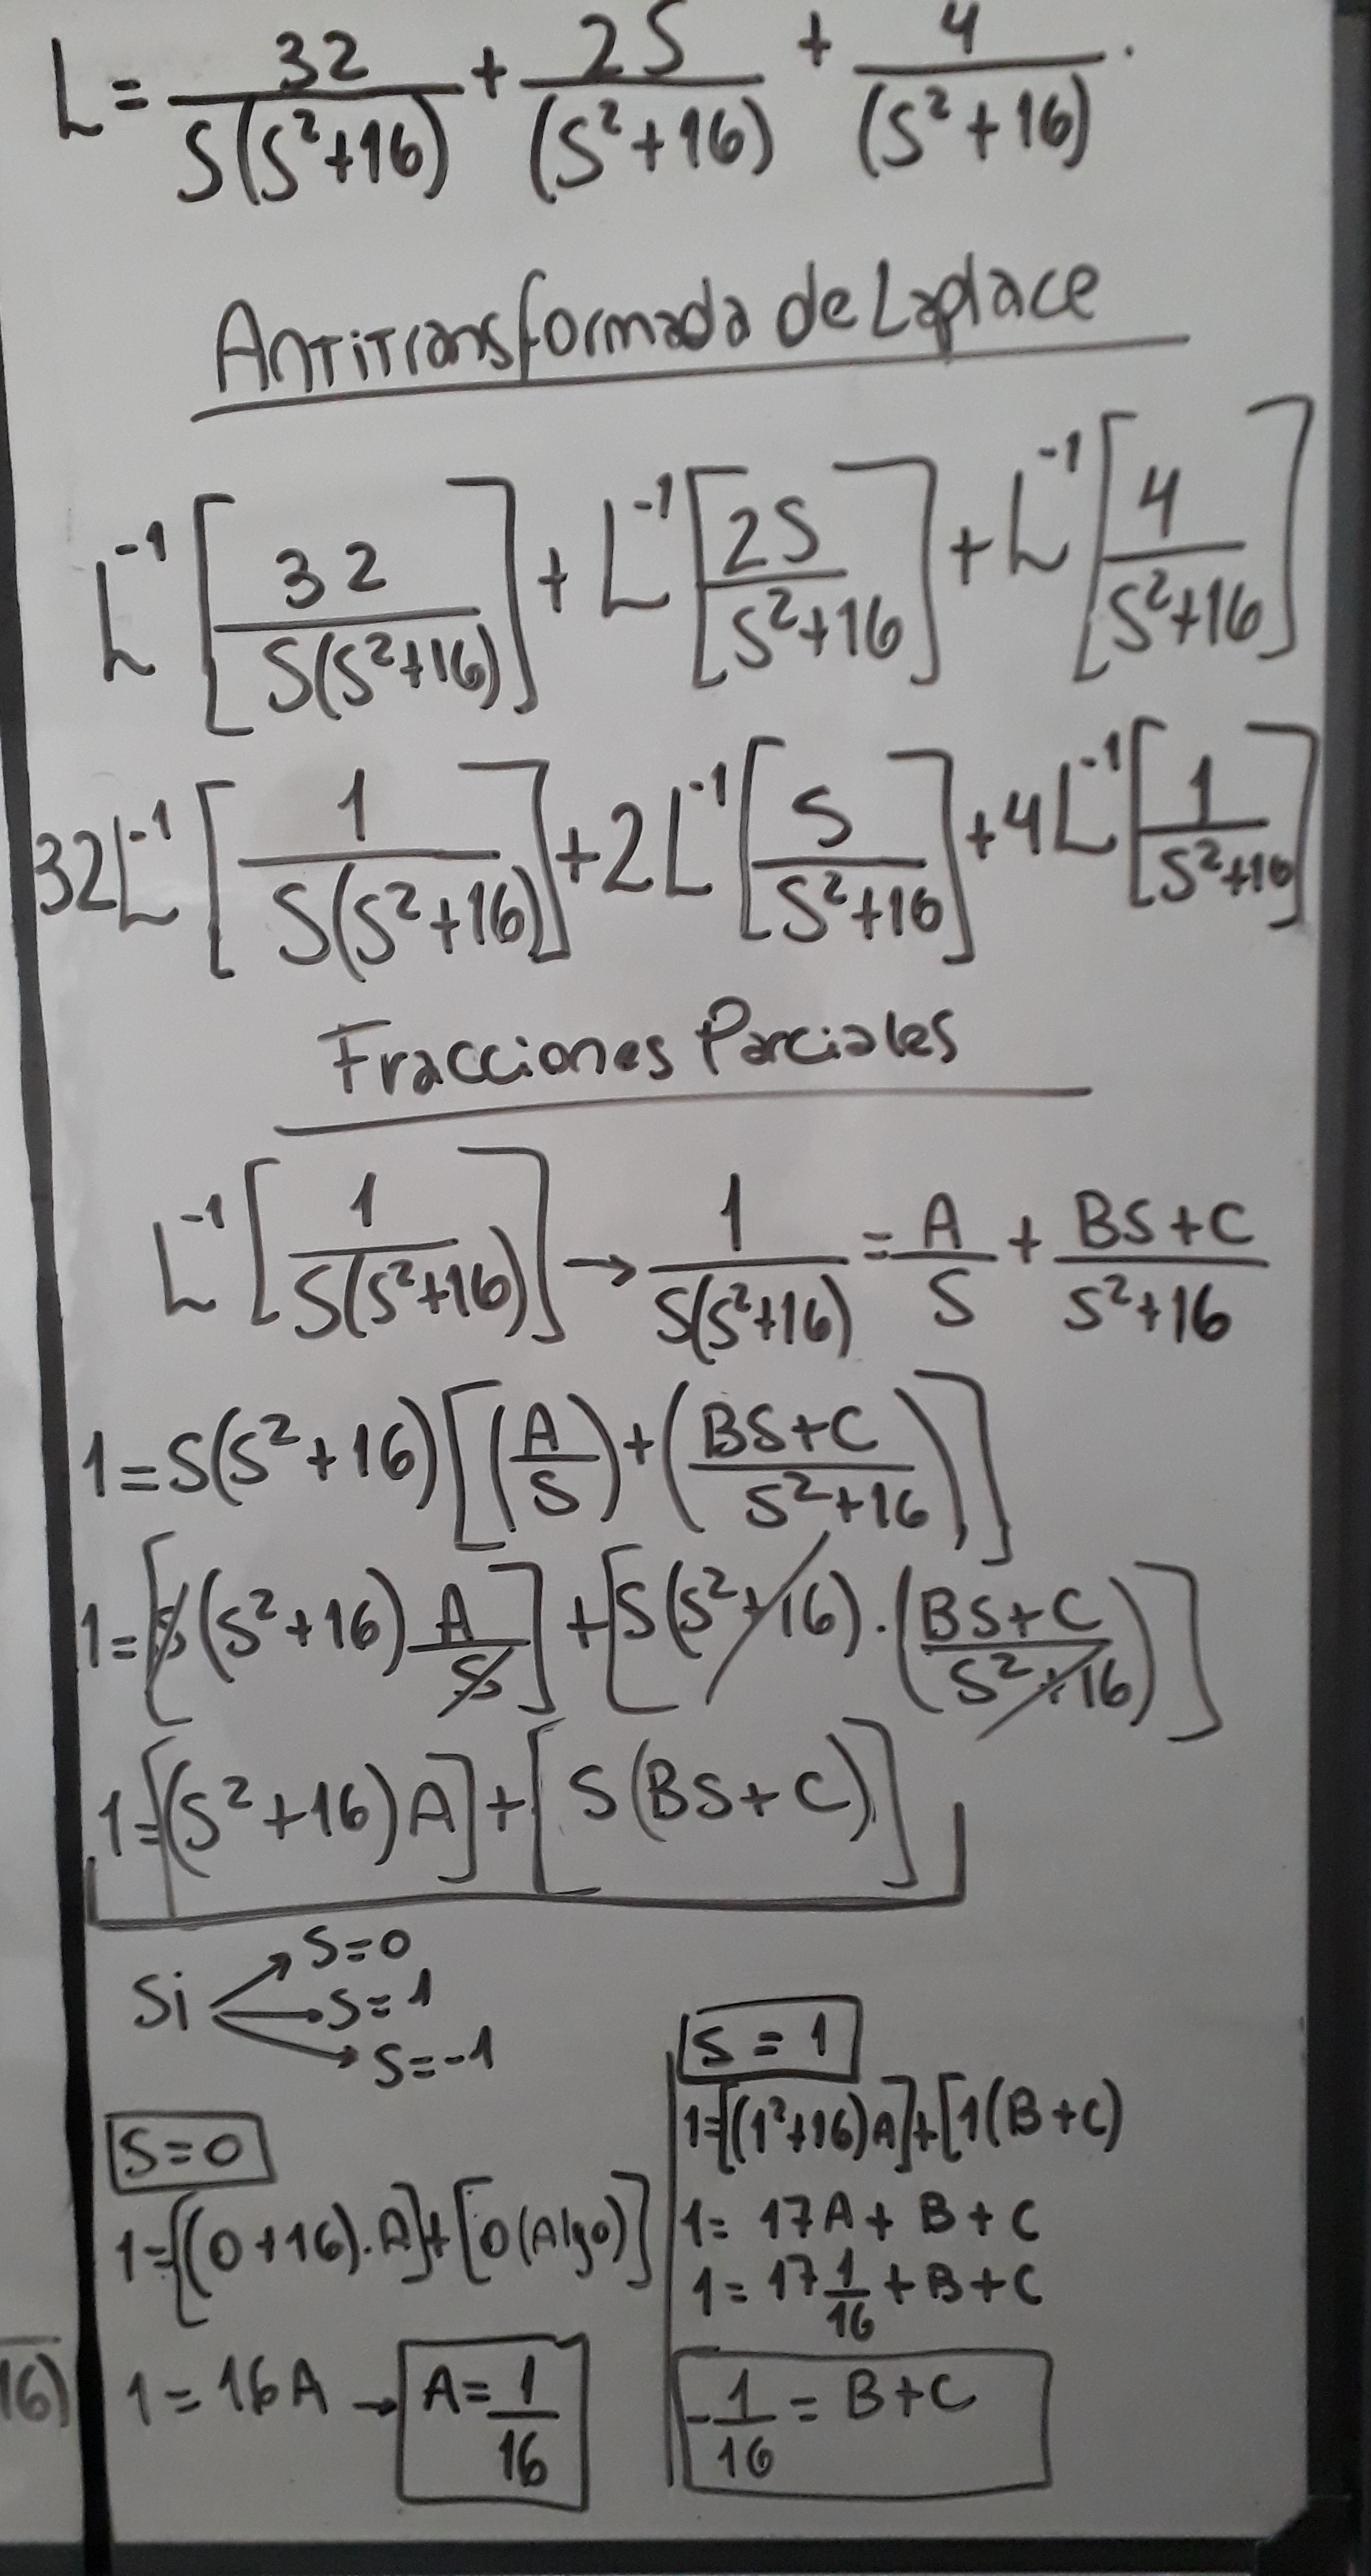 L = 32/(S(S²+16)) + 2S/(S²+16) + 4/(S²+16).
Antitransformada de Laplace
L⁻¹[32/(S(S²+16))] + L⁻¹[2S/(S²+16)] + L⁻¹[4/(S²+16)]
32L⁻¹[1/(S(S²+16))] + 2L⁻¹[S/(S²+16)] + 4L⁻¹[1/(S²+16)]
Fracciones Parciales
L⁻¹[1/(S(S²+16))] → 1/(S(S²+16)) = A/S + (BS+C)/(S²+16)
1 = S(S²+16)[(A/S) + ((BS+C)/(S²+16))]
1 = [S(S²+16) A/S] + [S(S²+16) · ((BS+C)/(S²+16))]
1 = [(S²+16)A] + [S(BS+C)]
Si
S=0
S=1
S=-1
S=0
1 = [(0+16).A] + [0(Algo)]
1 = 16A → A = 1/16
S = 1
1 = [(1²+16)A] + [1(B+C)
1 = 17A + B + C
1 = 17 1/16 + B + C
-1/16 = B+C
16)